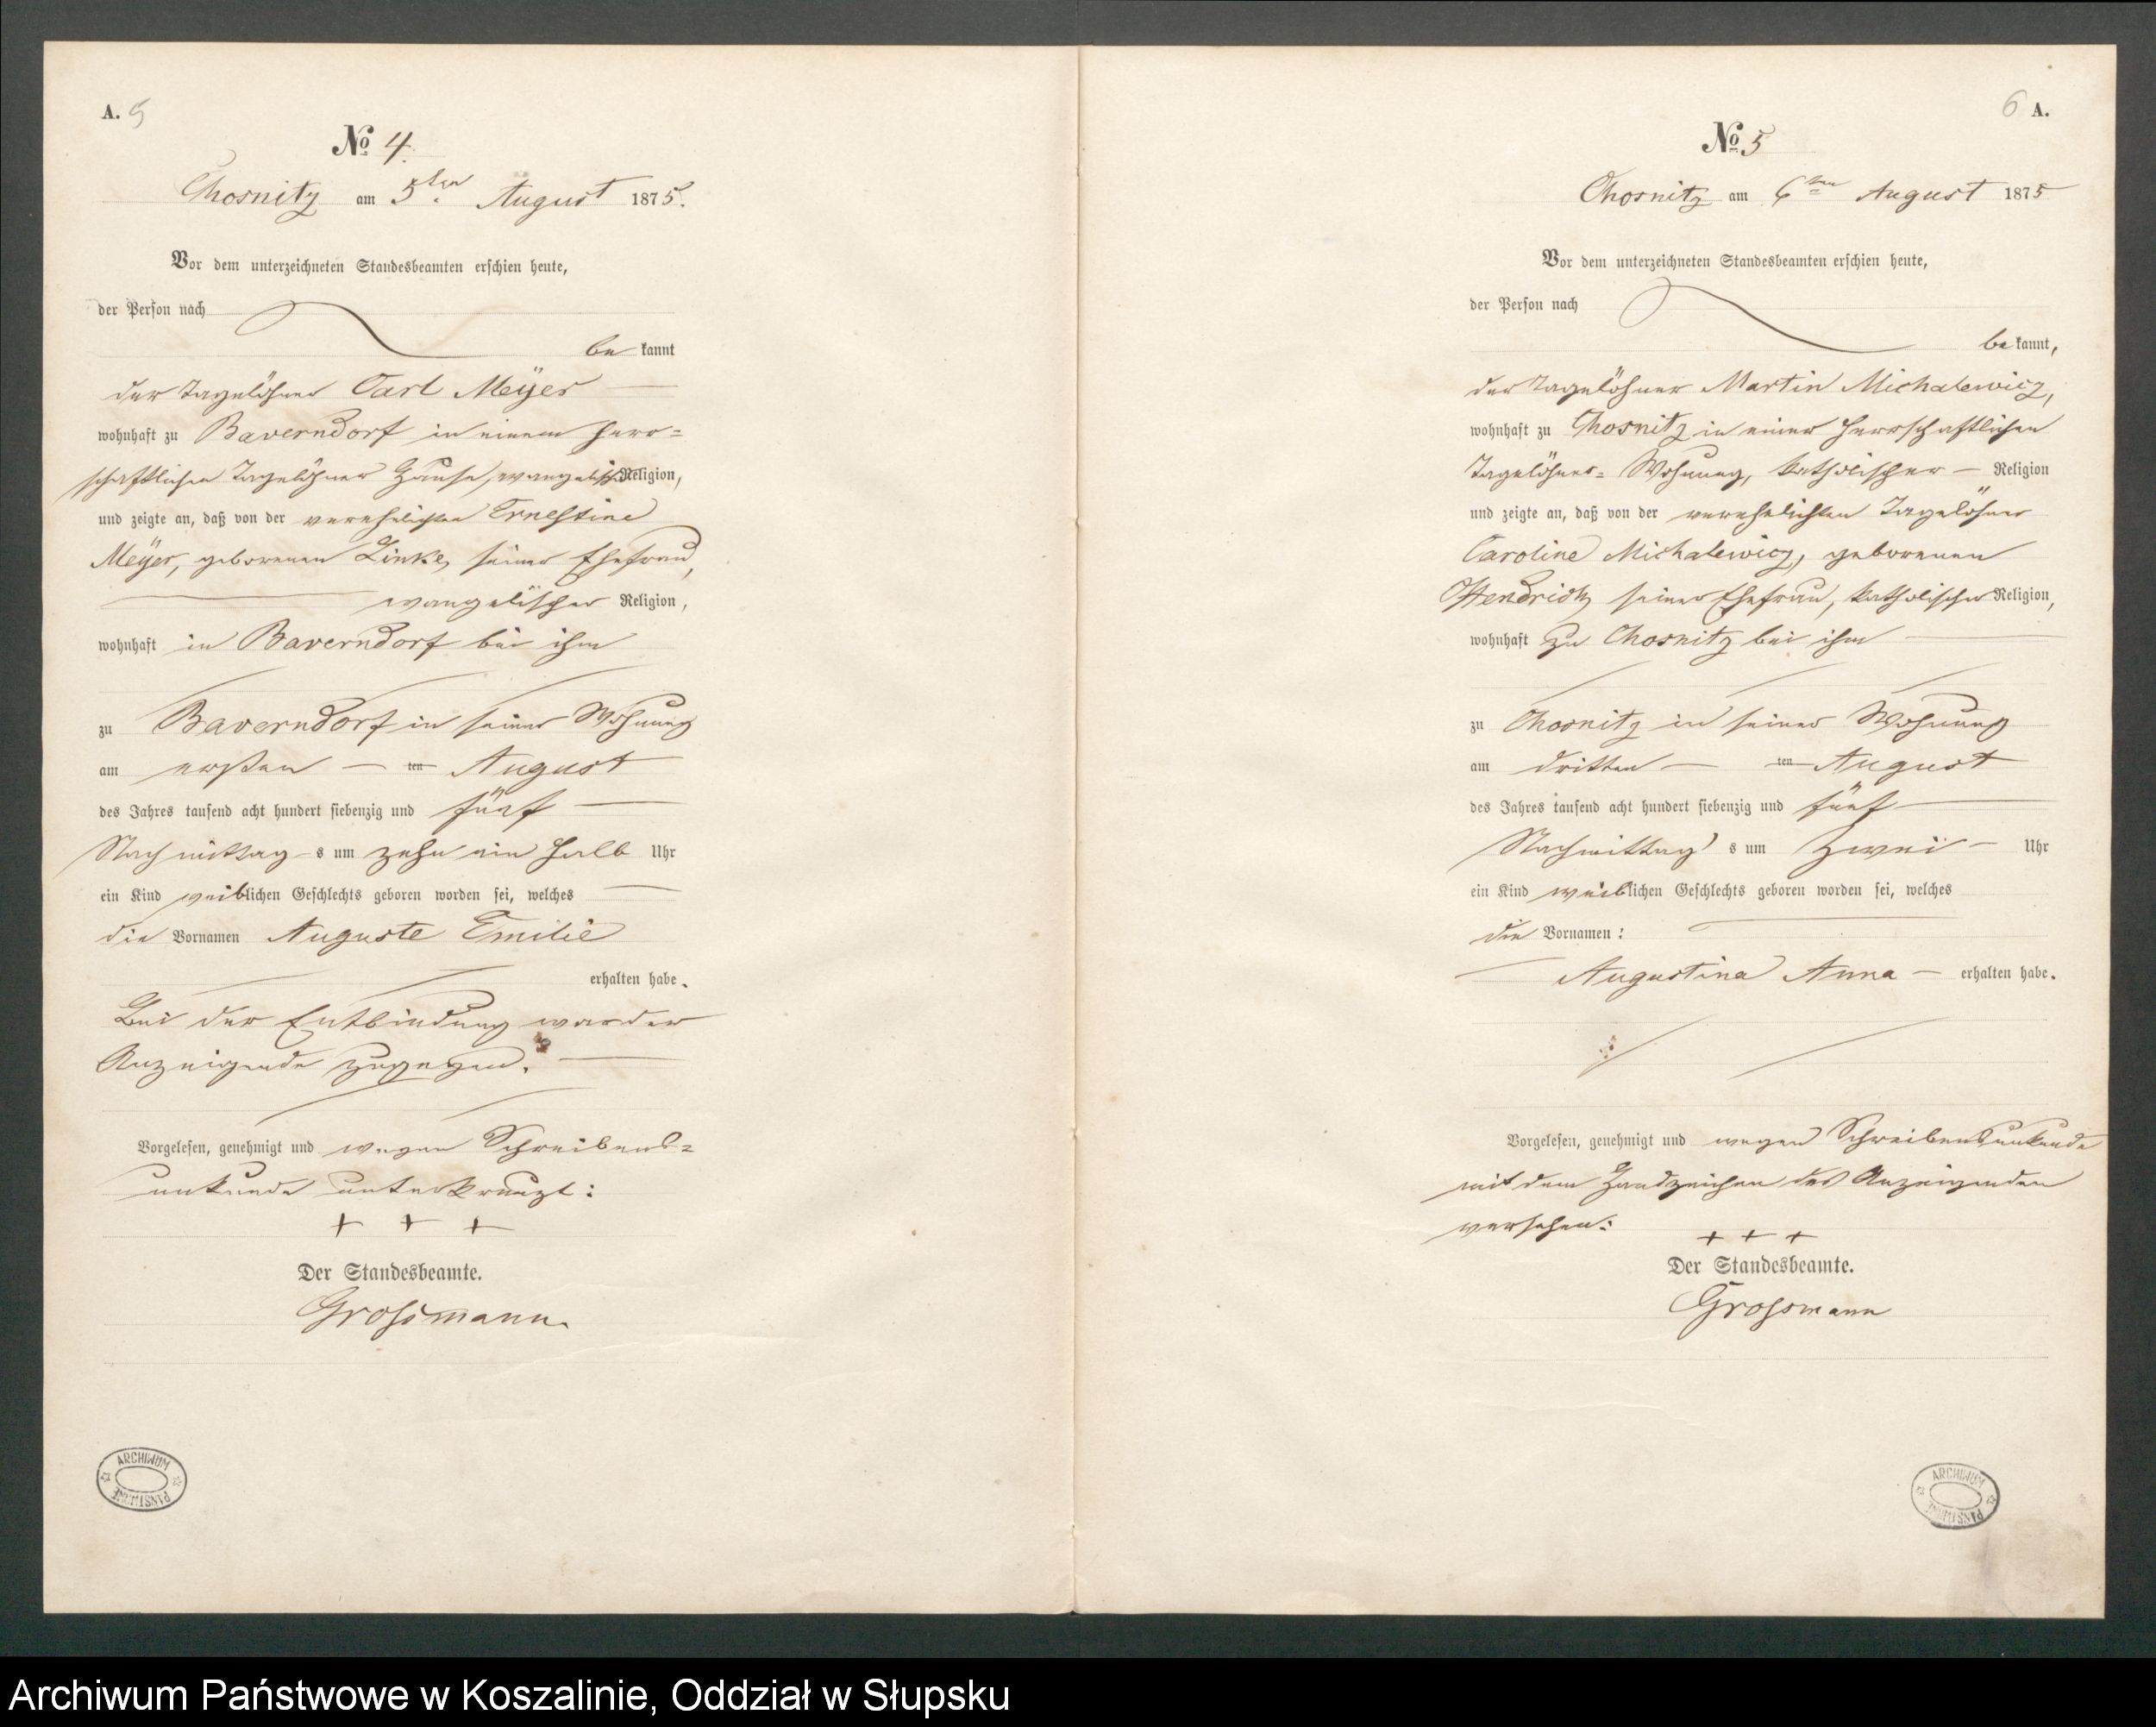 A. 5
№ 4.
Chosnitz am 5ten August 1875.
Vor dem unterzeichneten Standesbeamten erschien heute,
der Person nach
be kannt
der Tagelöhner Carl Meÿer
wohnhaft zu Baverndorf in einem herr=
schaftlichen Tagelöhner Hause, evangelischer Religion,
und zeigte an, daß von der verehelichten Ernestine
Meÿer, geborenen Linke, seiner Ehefrau,
evangelischer Religion,
wohnhaft in Baverndorf bei ihm
zu Baverndorf in seiner Wohnung
am ersten ten August
des Jahres tausend acht hundert siebenzig und fünf
Nachmittag s um zehn ein halb Uhr
ein Kind weiblichen Geschlechts geboren worden sei, welches
die Vornamen Auguste Emilie
erhalten habe.
Bei der Entbindung war der
Anzeigende zugegen.
Vorgelesen, genehmigt und wegen Schreibens=
unkunde unterkreuzt:
+ + +
Der Standesbeamte.
Grossmann.
ARCHIWUM PAŃSTWOWE
6 A.
№ 5
Chosnitz am 6ten August 1875
Vor dem unterzeichneten Standesbeamten erschien heute,
der Person nach
be kannt,
der Tagelöhner Martin Michalewicz,
wohnhaft zu Chosnitz in einer herrschaftlichen
Tagelöhner= Wohnung, katholischer Religion
und zeigte an, daß von der verehelichten Tagelöhner
Caroline Michalewicz, geborenen
Hendrich, seiner Ehefrau, katholischer Religion,
wohnhaft zu Chosnitz bei ihm
zu Chosnitz in seiner Wohnung
am dritten ten August
des Jahres tausend acht hundert siebenzig und fünf
Nachmittag s um zwei Uhr
ein Kind weiblichen Geschlechts geboren worden sei, welches
die Vornamen:
Augustina Anna erhalten habe.
Vorgelesen, genehmigt und wegen Schreibensunkunde
mit dem Handzeichen des Anzeigenden
versehen:
+ + +
Der Standesbeamte.
Grossmann
ARCHIWUM PAŃSTWOWE
Archiwum Państwowe w Koszalinie, Oddział w Słupsku